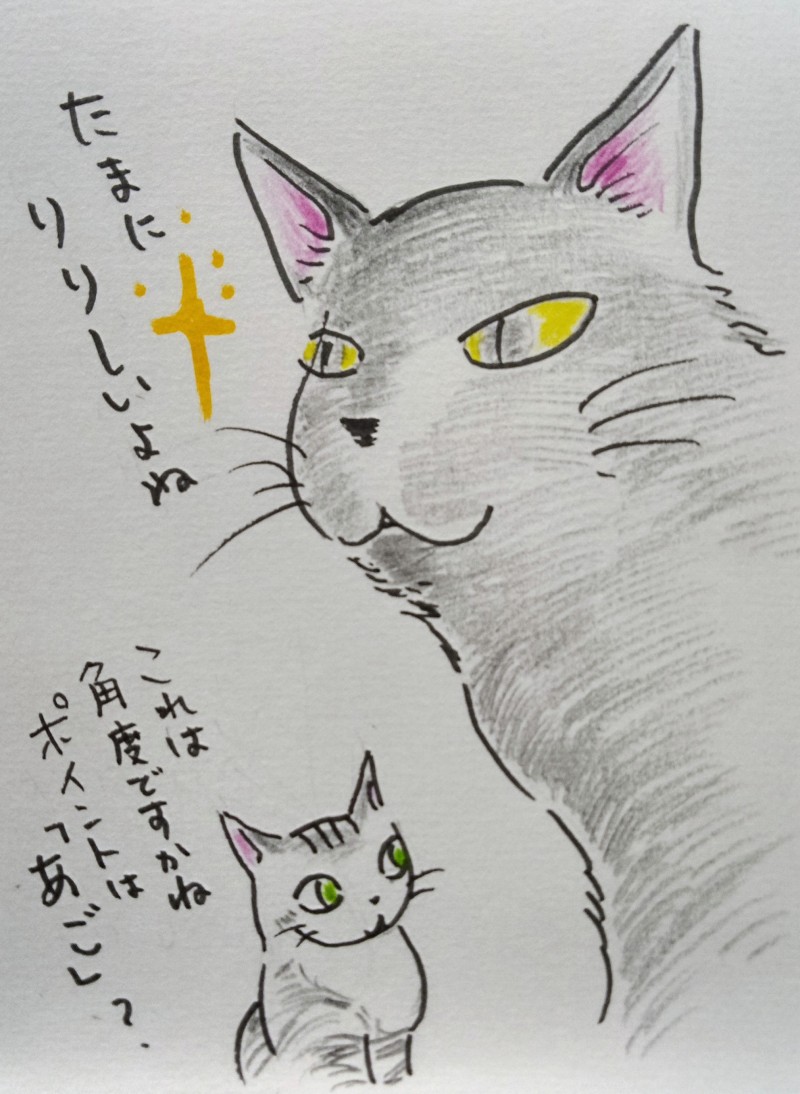 たまに
りりしいよね
これは
角度ですかね
ポイントは
「あご」?